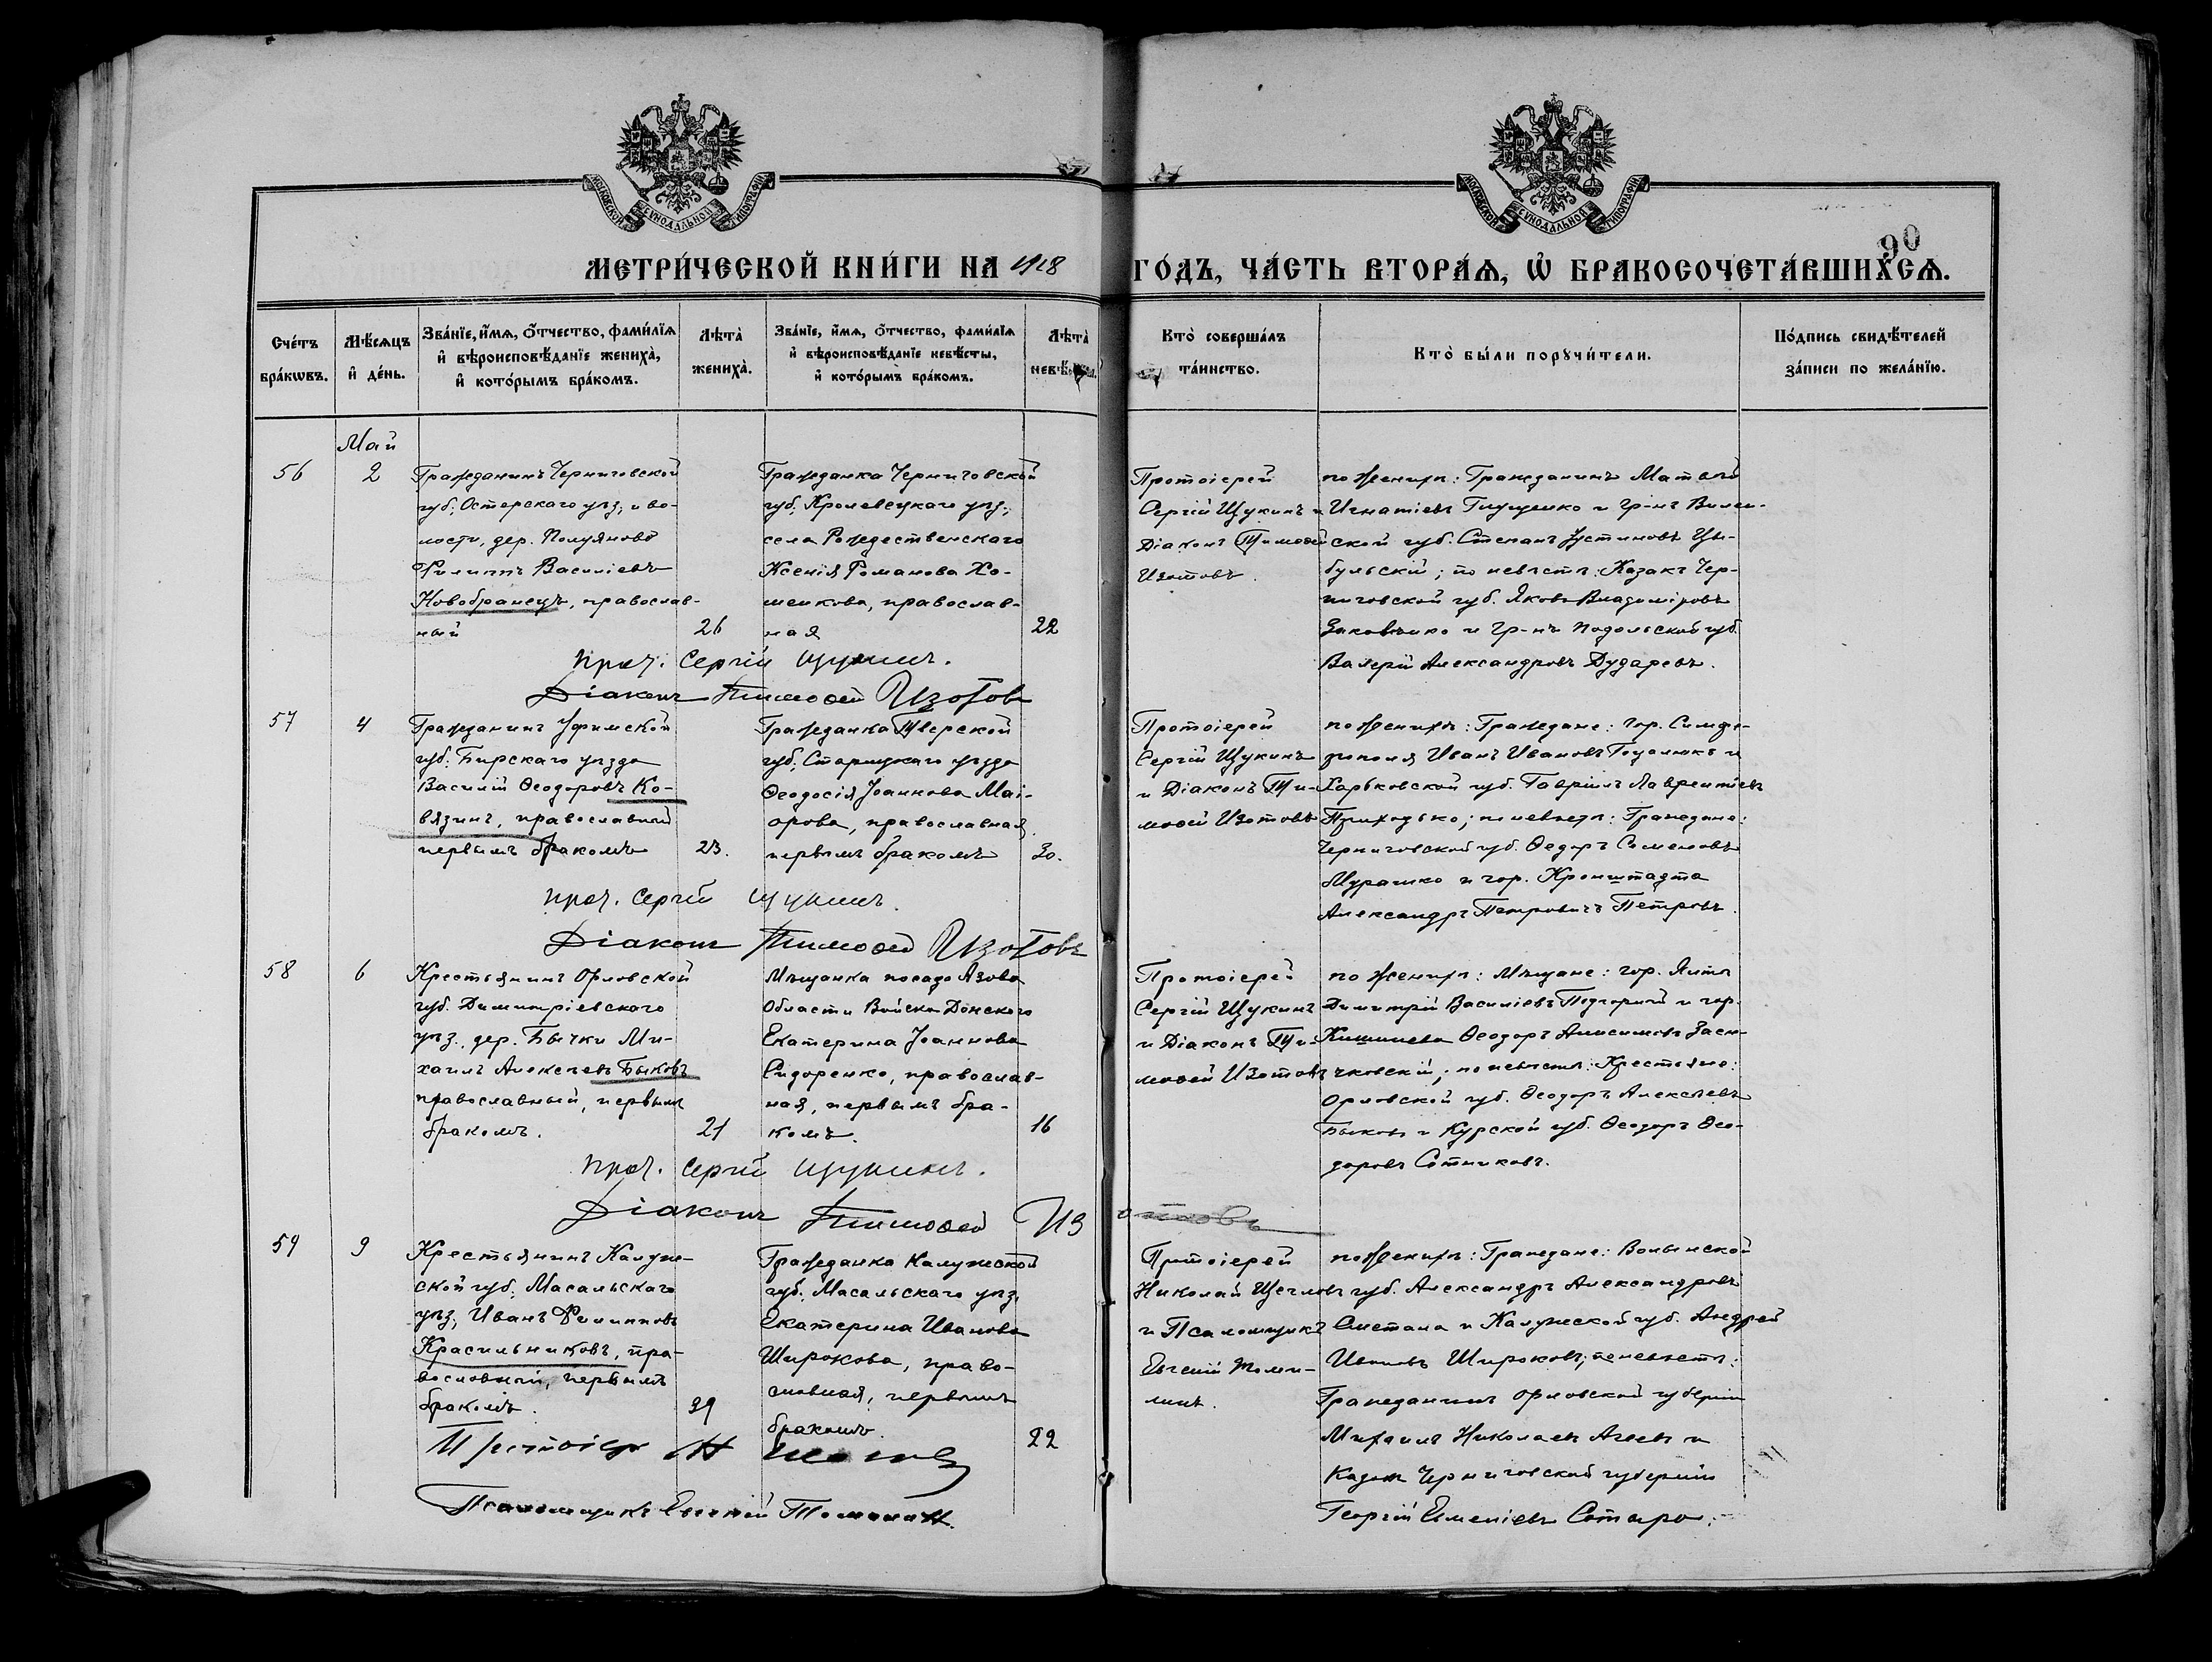 МОСКОВСКОЙ СѴНОДАЛЬНОЙ ТИПОГРАФІИ
МОСКОВСКОЙ СѴНОДАЛЬНОЙ ТИПОГРАФІИ
90
МЕТРИ́ЧЕСКОЙ КНИ́ГИ НА 1918 ГО́ДЪ, ЧА́СТЬ ВТОРА́Ѧ, Ѡ҆ БРАКОСОЧЕТА́ВШИХСѦ.
Сче́тъ бра́кѡвъ.
Мѣ́сѧцъ и҆ де́нь.
Зва́нїе, и҆́мѧ, ѻ҆́тчество, фами́лїѧ и҆ вѣроисповѣ́данїе жениха̀, и҆ кото́рымъ бра́комъ.
Лѣта̀ жениха̀.
Зва́нїе, и҆́мѧ, ѻ҆́тчество, фами́лїѧ и҆ вѣроисповѣ́данїе невѣ́сты, и҆ кото́рымъ бра́комъ.
Лѣта̀ невѣ́сты.
Кто̀ соверша́лъ та́инство.
Кто̀ бы́ли порꙋчи́тели.
По́дпись свидѣ́телей за́писи по жела́нїю.
Май
56
2
Гражданинъ Черниговской
губ., Остерскаго уѣз., и во-
лости, дер. Полуяново
Филиппъ Василіевъ
Новобранецъ, православ-
ный
26
Гражданка Черниговской
губ., Кролевецкаго уѣз.,
села Рождественскаго
Ксенія Романова Хо-
менкова, православ-
ная
22
Протоіерей
Сергій Щукинъ и
Діаконъ Тимоѳей
Изотовъ.
по женихѣ: Гражданинъ Матвѣй
Игнатіевъ Глущенко и гр-нъ Вилен-
ской губ. Степанъ Устиновъ Цы-
бульскій; по невѣстѣ: Казакъ Чер-
ниговской губ. Яковъ Владиміровъ
и гр-нъ Подольской губ.
Валерій Александровъ Дударевъ.
прот. Сергій Щукинъ.
Діаконъ Тимоѳей Изотовъ
57
4
Гражданинъ Уфимской
губ. Бирскаго уѣзда
Василій Ѳеодоровъ Ко-
вязинъ, православный
первымъ бракомъ
23.
Гражданка Тверской
губ., Старицкаго уѣзда
Ѳеодосія Іоаннова Маі-
орова, православная
первымъ бракомъ
30.
Протоіерей
Сергій Щукинъ
и Діаконъ Ти-
моѳей Изотовъ
по женихѣ: Граждане: гор. Симфе-
рополя Иванъ Ивановъ и
Харьковской губ. Гавріилъ Лаврентіевъ
Приходько; по невѣстѣ: Граждане:
Черниговской губ. Ѳедоръ Семеновъ
Мурашко и гор. Кронштадта
Александръ Петровичъ Петровъ.
прот. Сергій Щукинъ.
Діаконъ Тимоѳей Изотовъ
58
6
Крестьянинъ Орловской
губ. Димитріевскаго
уѣз., дер. Бычки Ми-
хаилъ Алексѣевъ Быковъ
православный, первымъ
бракомъ.
21
Мѣщанка посада Азова
Области Войска Донского
Екатерина Іоаннова
Сидоренко, православ-
ная, первымъ бра-
комъ.
16
Протоіерей
Сергій Щукинъ
и Діаконъ Ти-
моѳей Изотовъ
по женихѣ: Мѣщане: гор. Ялты
Димитрій Василіевъ Подгорный и гор.
Кишинева Ѳеодоръ Анисимовъ Засн-
чковскій; по невѣстѣ: Крестьяне:
Орловской губ. Ѳеодоръ Алексѣевъ
Быковъ и Курской губ. Ѳеодоръ Ѳео-
доровъ Сотниковъ.
прот. Сергій Щукинъ.
Діаконъ Тимоѳей Изотовъ
59
9
Крестьянинъ Калуж-
ской губ. Масальскаго
уѣз., Иванъ Филипповъ
Красильниковъ, пра-
вославный, первымъ
бракомъ.
29
Гражданка Калужской
губ. Масальскаго уѣз.
Екатерина Иванова
Широкова, право-
славная, первымъ
бракомъ.
22
Протоіерей
Николай Щегловъ
и Псаломщикъ
Евгеній Томи-
линъ.
по женихѣ: Граждане: Волынской
губ. Александръ Александровъ
Сметана и Калужской губ. Андрей
Ивановъ Широковъ; по невѣстѣ:
Гражданинъ Орловской губерніи
Михаилъ Николаевъ Агѣевъ и
Казакъ Черниговской губерніи
Георгій Сотыро.
Протоіер. Н
Псаломщикъ Евгеній Томилинъ.